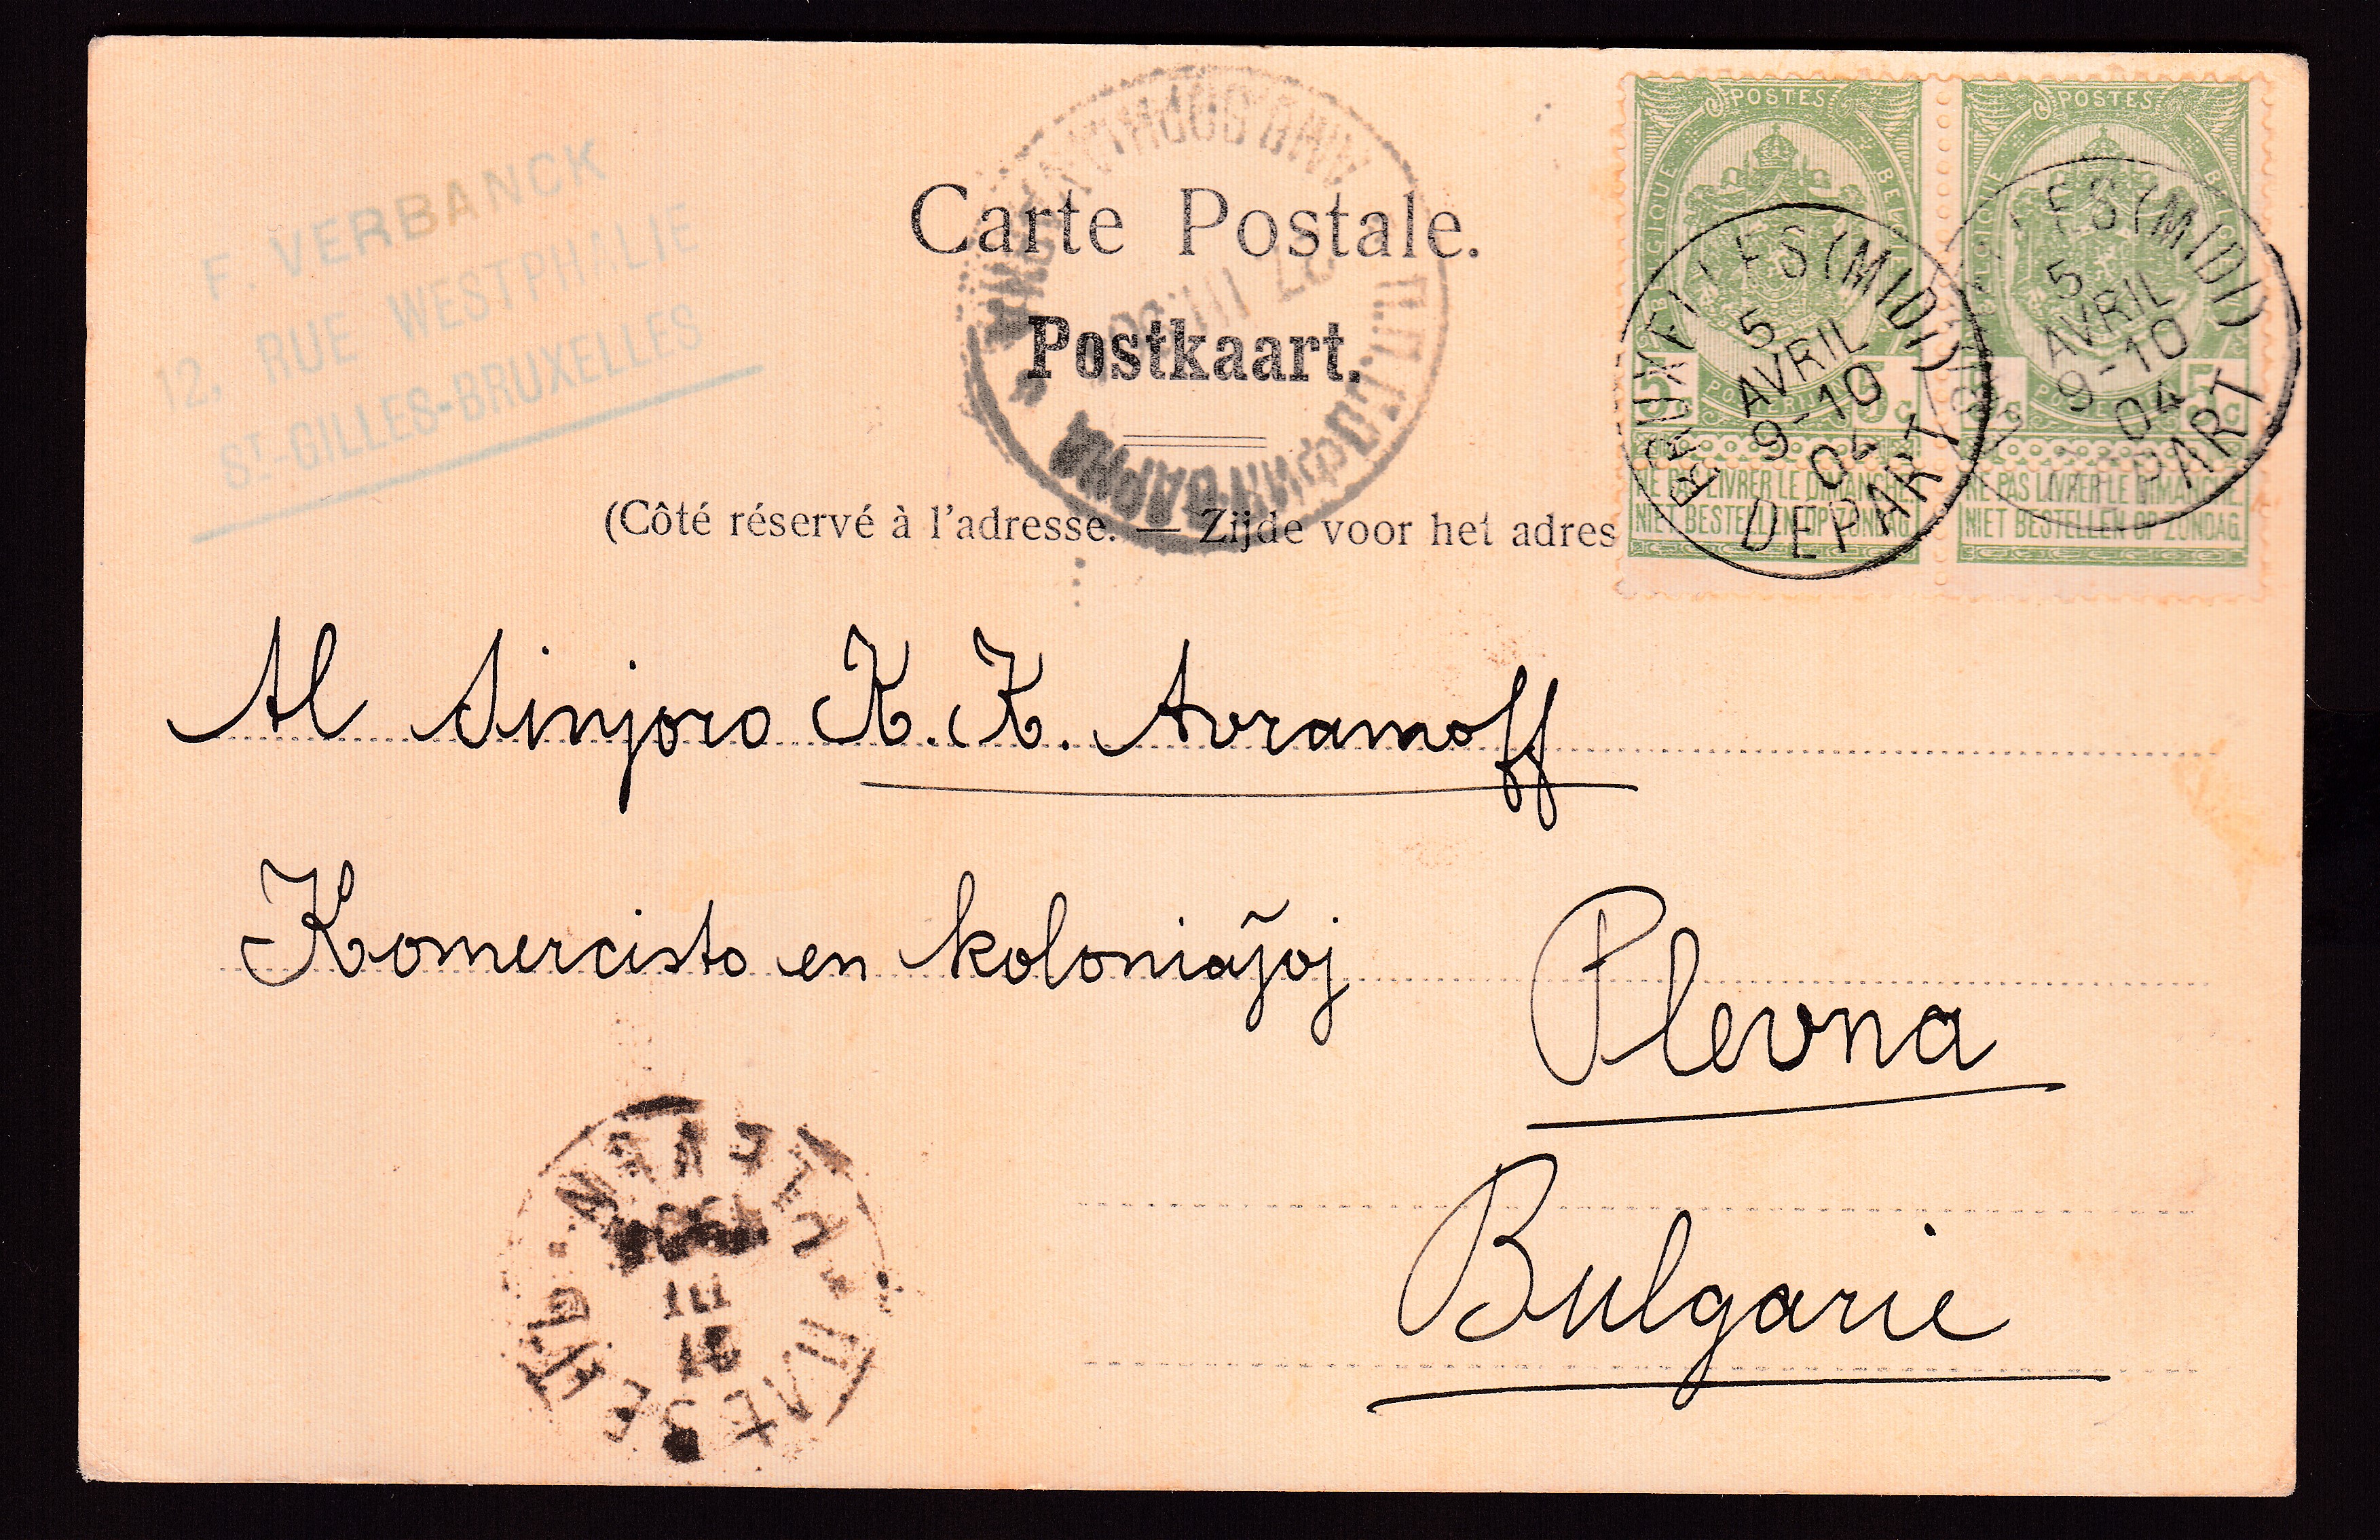 F. VERBANCK
12, RUE WESTPHALIE
ST-GILLES-BRUXELLES
Carte Postale.
Postkaart.
(Côté réservé à l'adresse. — Zijde voor het adres
POSTES
BELGIQUE
5c 5c
NE PAS LIVRER LE DIMANCHE
NIET BESTELLEN OP ZONDAG
POSTES
BELGIQUE
5c
NE PAS LIVRER LE DIMANCHE.
NIET BESTELLEN OP ZONDAG.
BRUXELLES (MIDI)
5
AVRIL
9-10
04
DEPART
(MIDI)
5
AVRIL
9-10
04
DEPART
Al Sinjoro K. K. Avramoff
Komercisto en koloniaĵoj
Plevna
Bulgarie
ПЛЕВЕНЪ
III